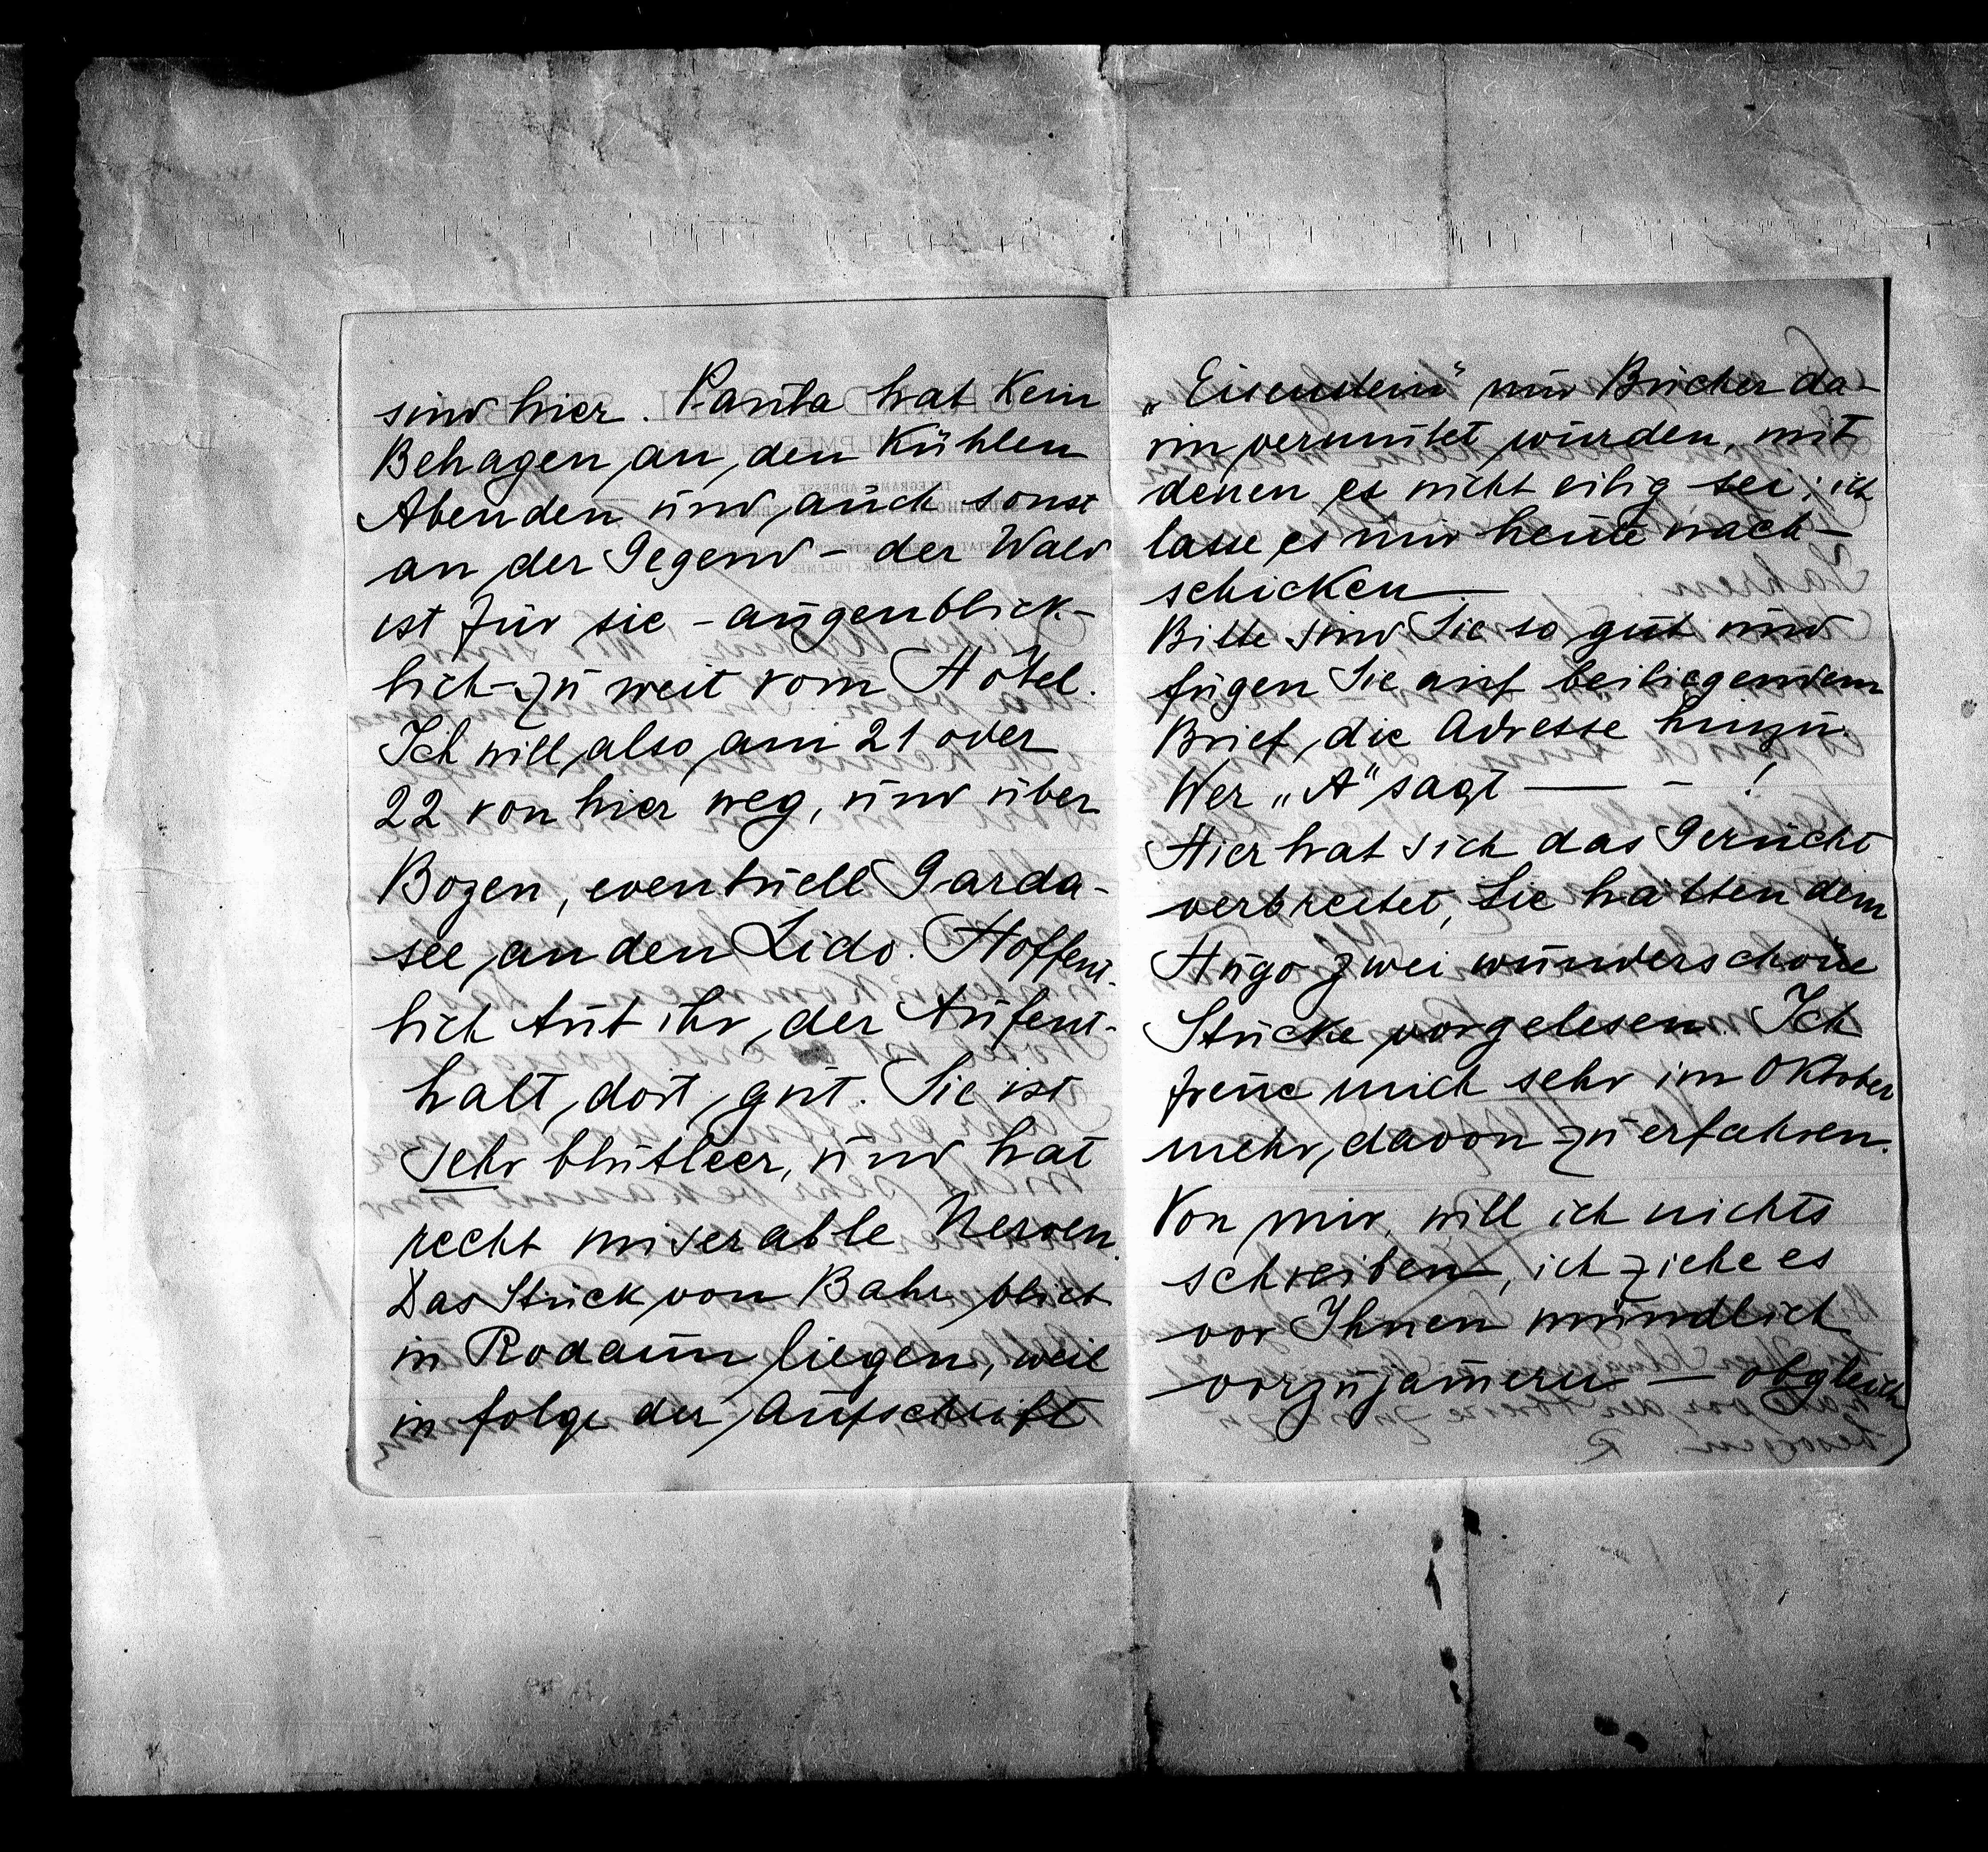 sind hier. Paula hat kein
Behagen an den kühlen
Abenden und auch sonst
an der Gegend – der Wald
ist für sie – augenblick-
lich – zu weit vom Hôtel.
Ich will also am 21 oder
22 von hier weg, und über
Bozen, eventuell Garda-
see an den Lido. Hoffent-
lich tut ihr der Aufent-
halt dort gut. Sie ist
sehr blutleer, und hat
recht miserable Nerven.
Das Stück von Bahr blieb
in Rodaun liegen, weil
in folge der Aufschrift
„Eisenstein" nur Bücher da-
rin vermutet wurden, mit
denen es nicht eilig sei; ich
lasse es mir heute nach-
schicken —
Bitte sind Sie so gut und
fügen Sie auf beiliegendem
Brief die Adresse hinzu.
Wer „A" sagt — – !
Hier hat sich das Gerücht
verbreitet, Sie hätten dem
Hugo zwei wunderschöne
Stücke vorgelesen Ich
freue mich sehr im Oktober
mehr davon zu erfahren.
Von mir will ich nichts
schreiben, ich ziehe es
vor Ihnen mündlich
vorzujam̅ern — obgleich